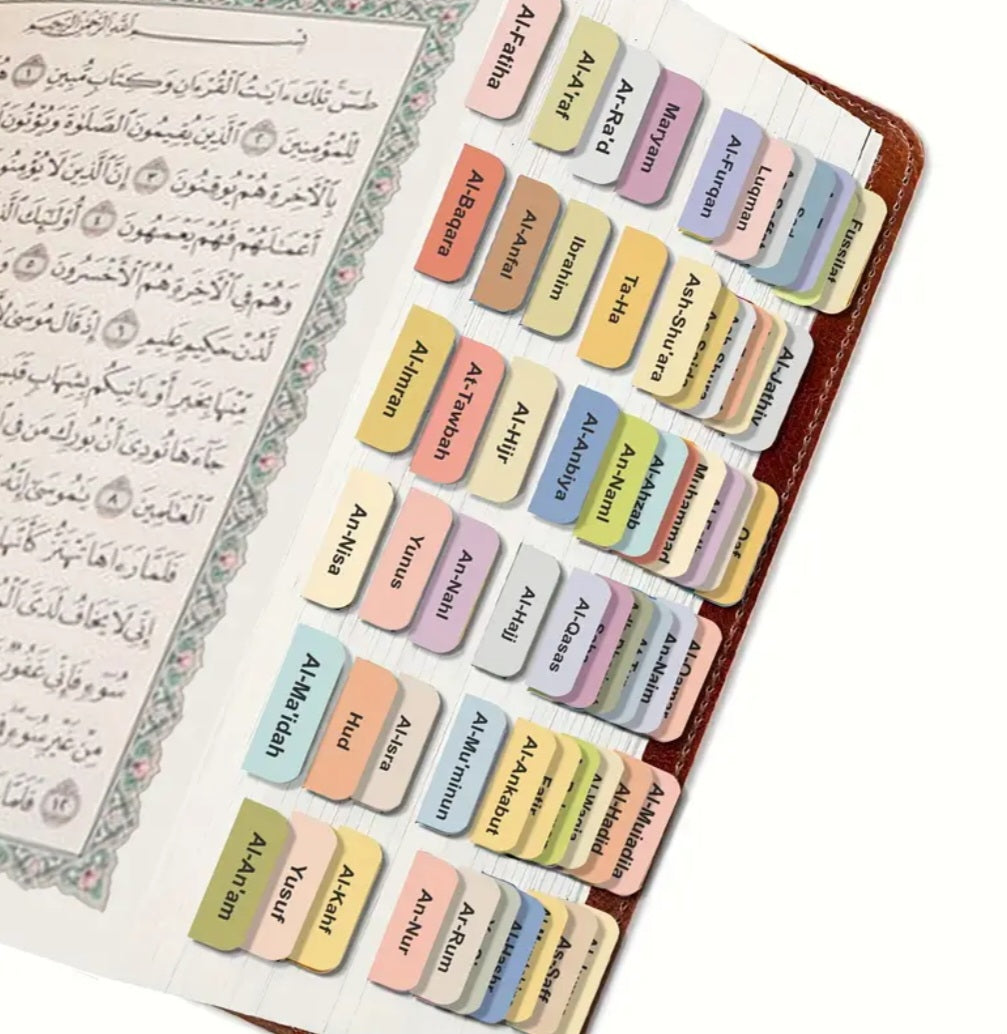 بِسْمِ ٱللَّهِ ٱلرَّحْمَٰنِ ٱلرَّحِيمِ
طسٓ تِلْكَ ءَايَٰتُ ٱلْقُرْءَانِ وَكِتَابٍ مُّبِينٍ ١
لِلْمُؤْمِنِينَ ٢ ٱلَّذِينَ يُقِيمُونَ ٱلصَّلَوٰةَ وَيُؤْتُونَ
بِٱلْأَخِرَةِ هُمْ يُوقِنُونَ ٣ إِنَّ ٱلَّذِينَ لَا يُؤْمِنُونَ
أَعْمَٰلَهُمْ فَهُمْ يَعْمَهُونَ ٤ أُوْلَٰٓئِكَ
وَهُمْ فِي ٱلْأَخِرَةِ هُمُ ٱلْأَخْسَرُونَ ٥
لَّدُنْ حَكِيمٍ عَلِيمٍ ٦ إِذْ قَالَ مُوسَىٰ
مِّنْهَا بِخَبَرٍ أَوْ ءَاتِيكُم بِشِهَابٍ
جَآءَهَا نُودِيَ أَنۢ بُورِكَ مَن فِي
ٱلْعَٰلَمِينَ ٨ يَٰمُوسَىٰٓ إِنَّهُۥ
فَلَمَّا رَءَاهَا تَهْتَزُّ كَأَنَّهَا
إِنِّي لَا يَخَافُ لَدَيَّ
سُوٓءٍ فَإِنِّي غَفُورٌ
مِنْ غَيْرِ سُوٓءٍ
١٢ فَلَمَّا
Al-Fatiha
Al-A'raf
Ar-Ra'd
Maryam
Al-Furqan
Luqman
Fussilat
Al-Baqara
Al-Anfal
Ibrahim
Ta-Ha
Ash-Shu'ara
Al-Jathiy
Al-Imran
At-Tawbah
Al-Hijr
Al-Anbiya
An-Naml
Al-Ahzab
Muhammad
Qaf
An-Nisa
Yunus
An-Nahl
Al-Hajj
Al-Qasas
An-Najm
Al-Qamar
Al-Ma'idah
Hud
Al-Isra
Al-Mu'minun
Al-Ankabut
Fatir
Al-Hadid
Al-Mujadila
Al-An'am
Yusuf
Al-Kahf
An-Nur
Ar-Rum
Al-Hashr
As-Saff